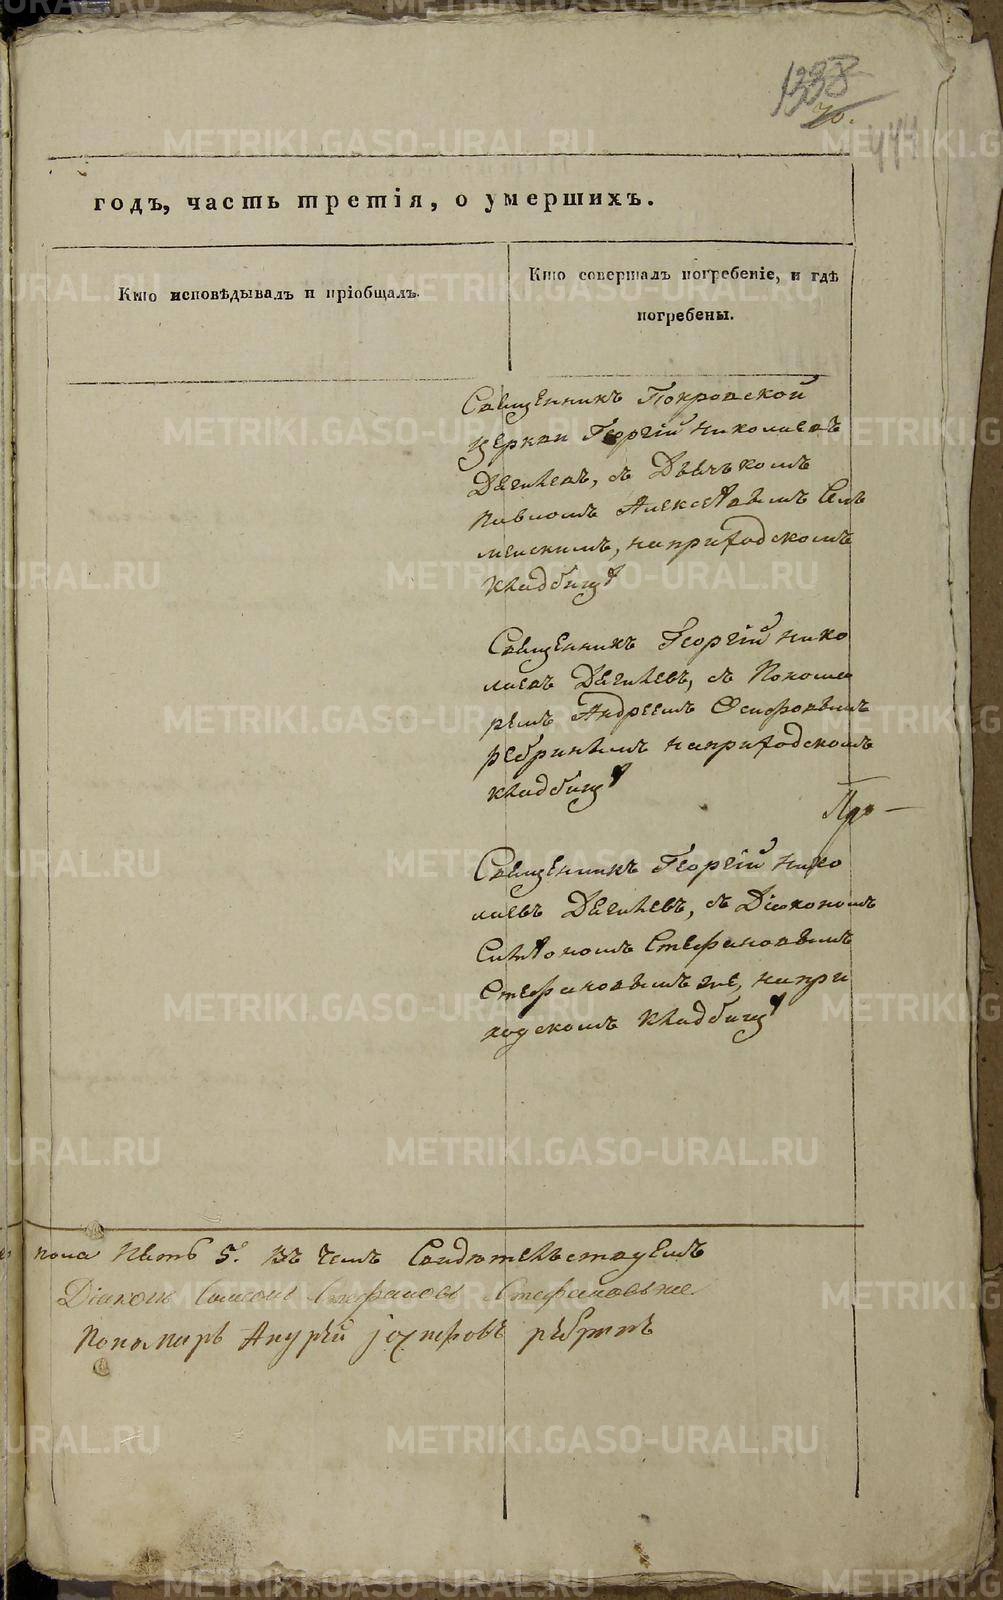 1338
70.
444
годъ, часть третія, о умершихъ.
Кто исповѣдывалъ и пріобщалъ.
Кто совершалъ погребеніе, и гдѣ
погребены.
Священникъ Покровской
церкви Георгій Николаевъ
Дягилевъ, съ Дьячкомъ
Павломъ Алексѣевымъ
на приходскомъ
кладбищѣ
Священникъ Георгій Нико
лаевъ Дягилевъ, съ Понома
ремъ Андреемъ Осиповымъ
Ребринымъ на приходскомъ
кладбищѣ
Священникъ Георгій Нико
лаевъ Дягилевъ, съ Діакономъ
Стефановымъ
Стефановымъ же, на при
ходскомъ кладбищѣ
пола пять 5. въ чемъ свидѣтельствуемъ
Діаконъ Стефановъ Стефановъ же
Пономарь Андрей Ребринъ
METRIKI.GASO-URAL.RU